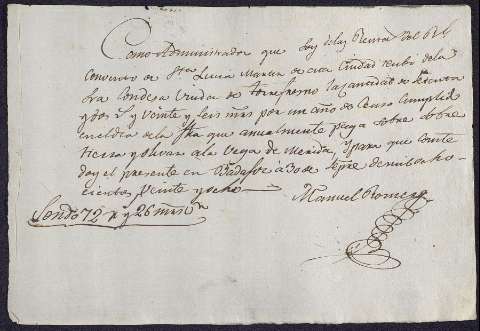 Como Administrador que soy de las Rentas del Rl
Convento de Sta Lucia Martir de esta Ciudad recibi de la
Sra Condesa Viuda de Torrefresno la cantidad de setenta
y dos rs y veinte y seis mrs por un año de Censo cumplido
en el dia de la fha que anualmente paga sobre
tierra y olivar a la Vega de Merida, y para que conste
doy el presente en Badajoz a 30 de Sepre de mil ocho-
cientos veinte y ocho
Manuel Romero
Son 72 rs y 26 mrs vn